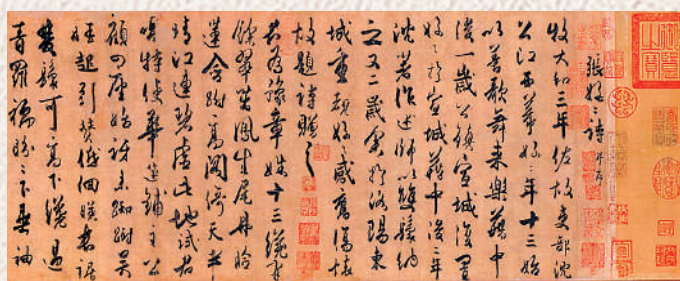 張好好詩 并序
牧大和三年佐故吏部沈
公江西幕好好年十三始
以善歌舞來樂籍中
後一歲公鎮宣城復置
好好於宣城籍中後二年
沈著作述師以雙鬟納
之又二歲余於洛陽東
城重覩好好感舊傷懷
故題詩贈之
君為豫章姝十三纔有
餘翠茁鳳生尾丹臉
蓮含跗高閣倚天半
晴江連碧虛此地試君
唱特使華筵鋪主公
顧四座始訝來踟躕吳
娃起引贊低佪暎長裾
雙鬟可高下纔過
青羅襦盼盼下垂袖